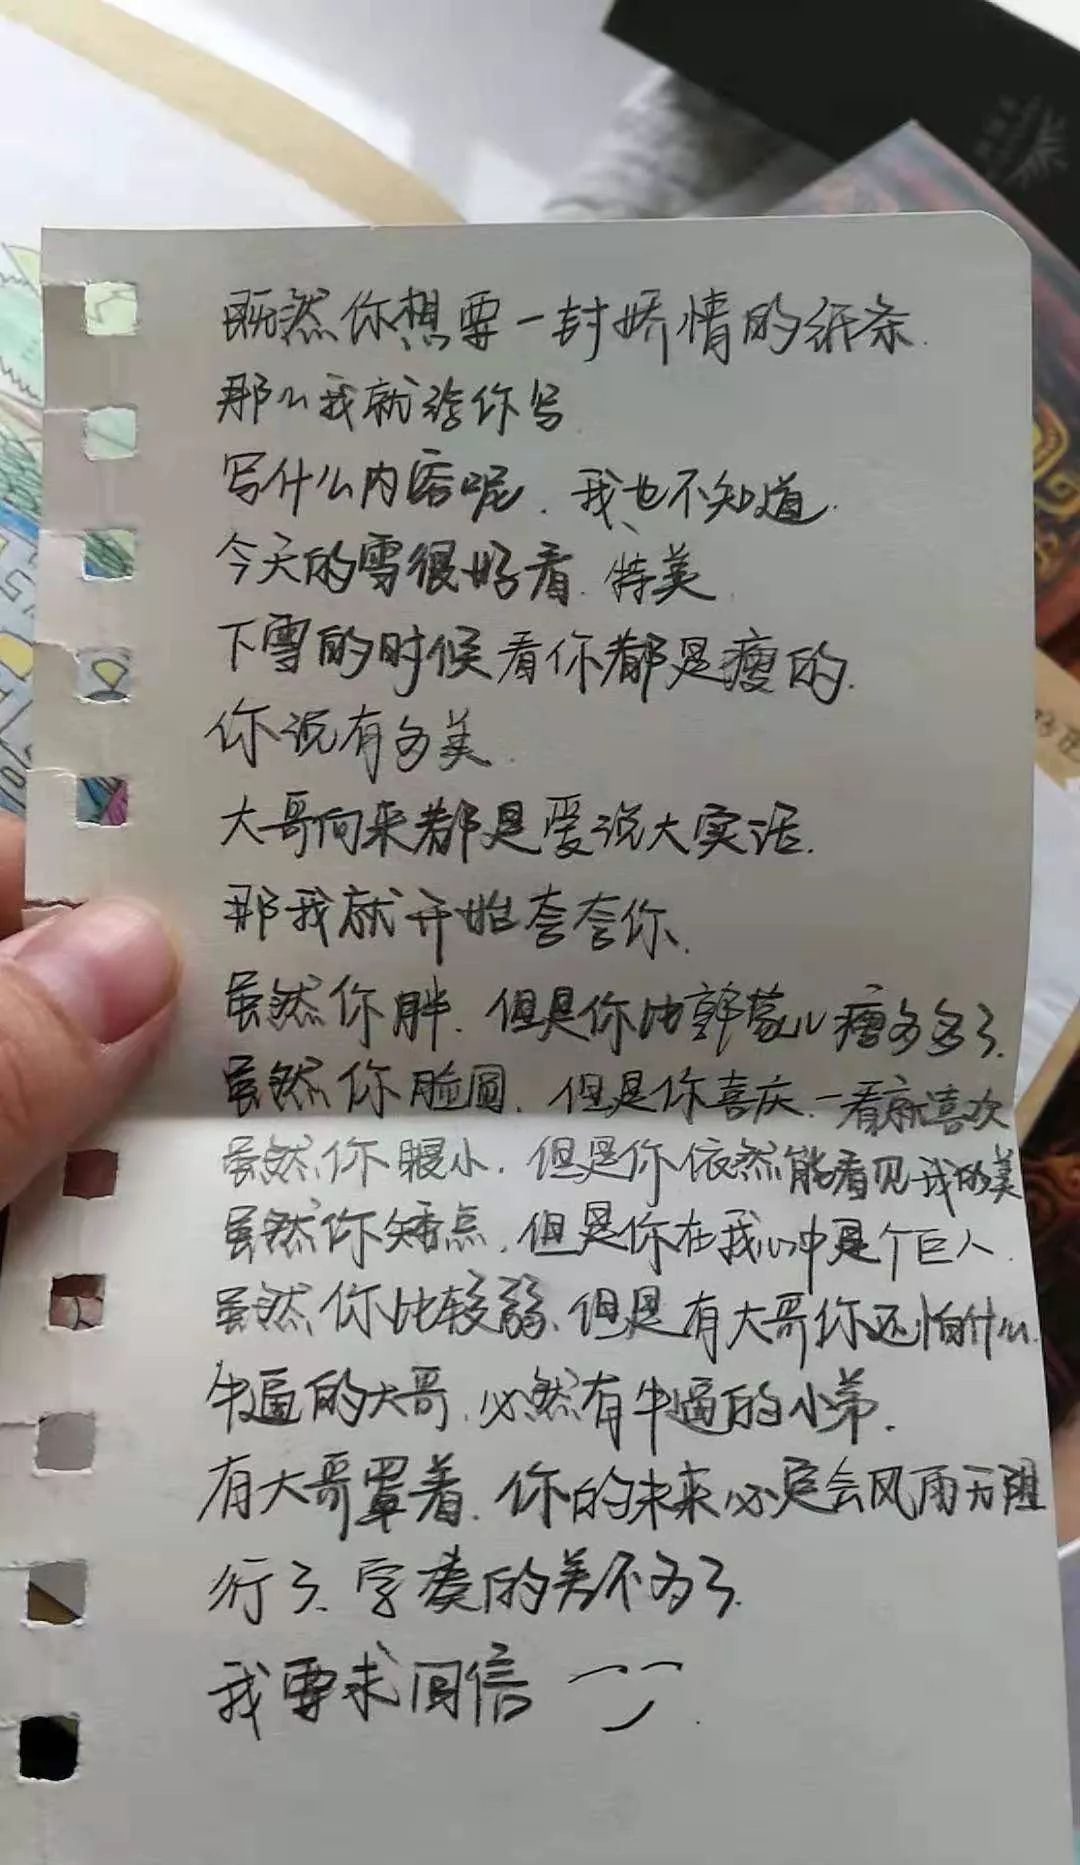 既然你想要一封娇情的纸条.
那么我就给你写
写什么内容呢.我也不知道.
今天的雪很好看.特美
下雪的时候看你都是瘦的.
你说有多美.
大哥向来都是爱说大实话.
那我就开始夸夸你.
虽然你胖.但是你比韩蒙心瘦多多了.
虽然你脸圆.但是你喜庆.一看就喜欢
虽然你眼小.但是你依然能看见我的美
虽然你矮点.但是你在我心中是个巨人.
虽然你比较弱.但是有大哥你还怕什么.
牛逼的大哥.必然有牛逼的小弟.
有大哥罩着.你的未来必定会风雨无阻
行了.字凑的差不多了.
我要求回信